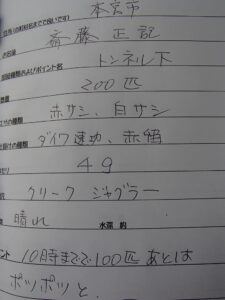 本宮市
斎藤正記
トンネル下
200匹
赤サシ、白サシ
ダイワ速功、赤留
4g
クリーク ジャグラー
晴れ
水深 約
10時まで100匹 あとは
ポツポツと。